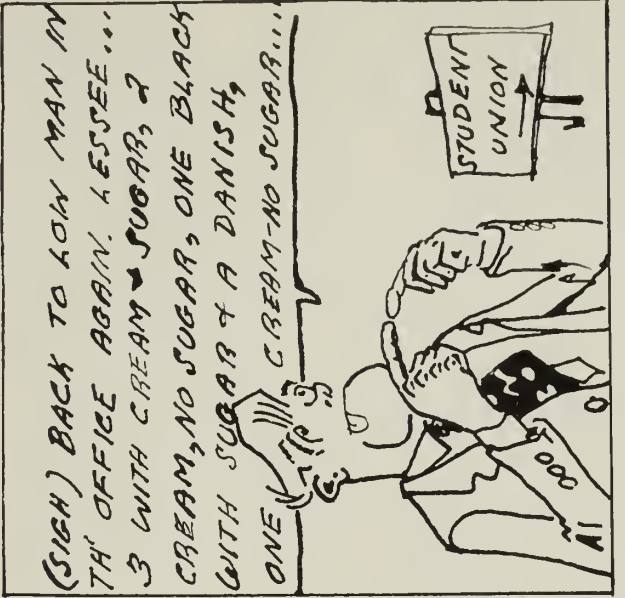 (SIGH) BACK TO LOW MAN IN
TH' OFFICE AGAIN. LESSEE...
3 WITH CREAM & SUGAR, 2
CREAM, NO SUGAR, ONE BLACK
WITH SUGAR & A DANISH,
ONE CREAM-NO SUGAR...
STUDENT
UNION